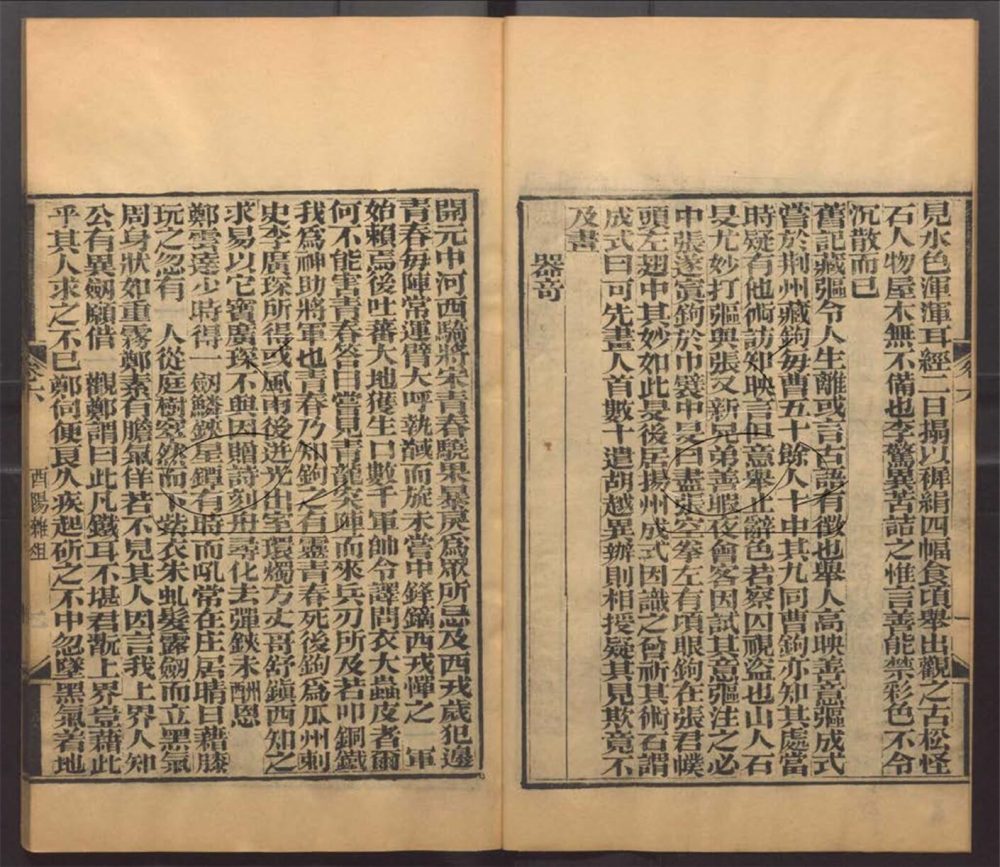 見水色渾渾耳經二日搨以穉絹四幅食頃舉出觀之古松怪
石人物屋木無不備也李驚異苦詰之惟言善能禁彩色不令
沉散而已
舊記藏彄令人生離或言古語有徵也舉人高映善意彄成式
嘗於荆州藏鉤每曹五十餘人十中其九同曹鉤亦知其處當
時疑有他術訪知映言但意舉止辭色若察囚視盜也山人石
旻尤妙打彄與張又新兄弟善暇夜會客因試其意彄注之必
中張遂寘鉤於巾襞中旻曰盡張空拳左有頃眼鉤在張君幞
頭左翅中其妙如此旻後居揚州成式因識之曾祈其術石謂
成式曰可先畫人首數十遣胡越異辦則相授疑其見欺竟不
及畫
器奇
開元中河西騎將宋青春驍果暴戾爲眾所忌及西戎歲犯邊
青春每陣常運臂大呼執馘而旋未嘗中鋒鏑西戎憚之一軍
始賴焉後吐蕃大地獲生口數千軍帥令譯問衣大蟲皮者爾
何不能害青春答曰嘗見青龍突陣而來兵刃所及若叩銅鐵
我爲神助將軍也青春乃知鉤之有靈青春死後鉤爲瓜州刺
史李廣琛所得或風雨後迸光出室環燭方丈哥舒鎮西知之
求易以它寶廣琛不與因贈詩刻舟尋化去彈鋏未酬恩
鄭雲逵少時得一劒鱗鋏星鐔有時而吼常在庄居晴日藉膝
玩之忽有一人從庭樹窣然而下紫衣朱虬髮露劒而立黑氣
周身狀如重霧鄭素有膽氣佯若不見其人因言我上界人知
公有異劒願借一觀鄭謂曰此凡鐵耳不堪君翫上界豈藉此
乎其人求之不已鄭伺便良久疾起斫之不中忽墜黑氣着地
卷六
酉陽雜俎